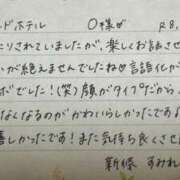 ドホテル 〇様が R8.
こりされていましたが、楽しくお話させ
が絶えませんでしたね🩷言語化が
ボでした！(笑)顔がタイプだから♪
なくなるのがかわいらしかったです♪
嬉しかったです！また気持ち良くさせ
新條 すみれ